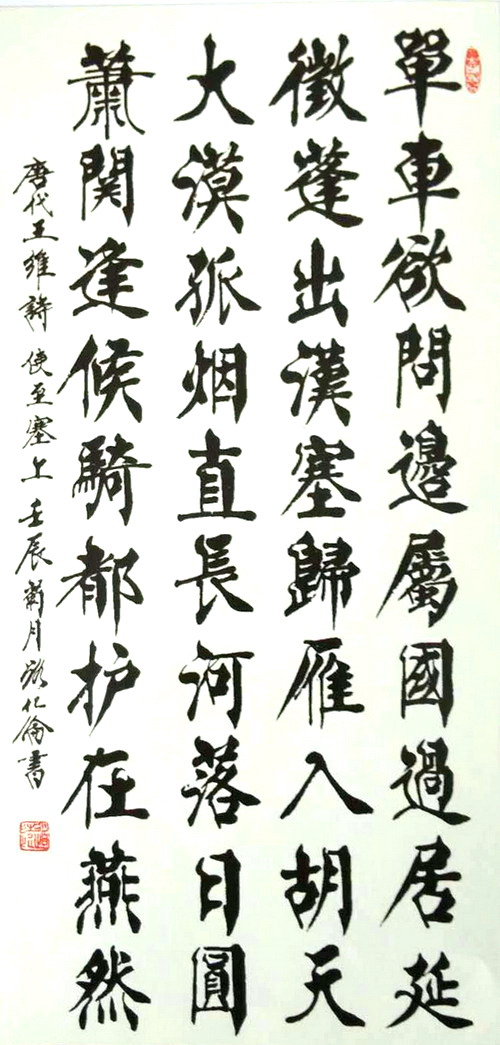 單車欲問邊屬國過居延
徵蓬出漢塞歸雁入胡天
大漠孤烟直長河落日圓
蕭関逢候騎都护在燕然
唐代王維詩 使至塞上 壬辰月書